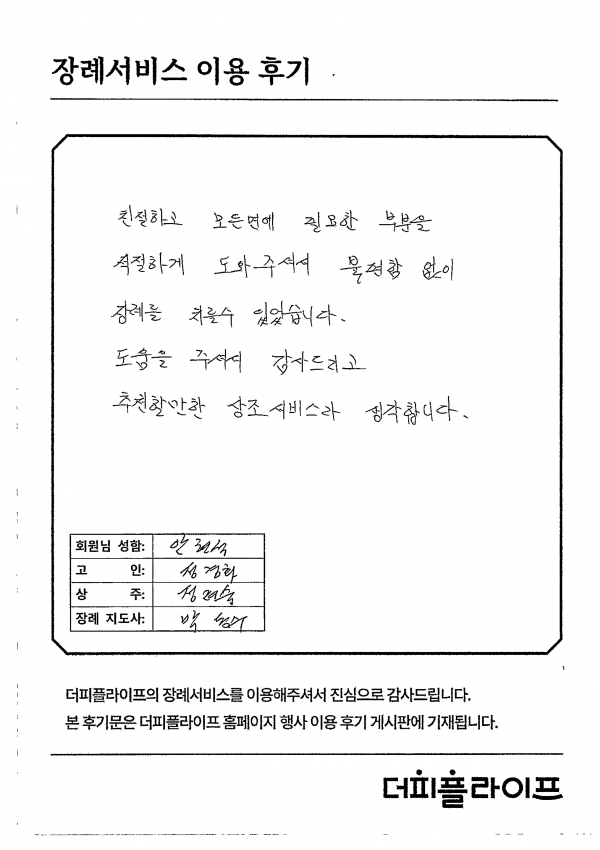 장례서비스 이용 후기
친절하고 모든면에 필요한 부분을
적절하게 도와주셔서 불편함 없이
장례를 치를수 있었습니다.
도움을 주셔서 감사드리고
추천할만한 상조서비스라 생각합니다.
회원님 성함:
고 인: 성경화
상 주:
장례 지도사:
더피플라이프의 장례서비스를 이용해주셔서 진심으로 감사드립니다.
본 후기문은 더피플라이프 홈페이지 행사 이용 후기 게시판에 기재됩니다.
더피플라이프